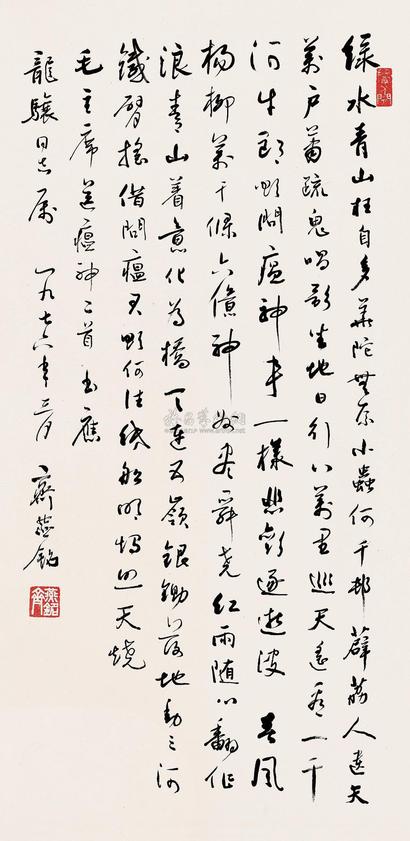 綠水青山枉自多華陀無奈小蟲何千邨薜荔人遗矢
萬户蕭疏鬼唱歌坐地日行八萬里巡天遥看一千
河牛郎欲問瘟神事一樣悲歡逐逝波 春風
楊柳萬千條六億神州盡舜尧紅雨隨心翻作
浪青山着意化为橋天連五嶺銀鋤落地動三河
鐵臂搖借問瘟君欲何往紙船明燭照天燒
毛主席送瘟神二首書應
龍驤同志属 一九七六年三月 齊燕銘